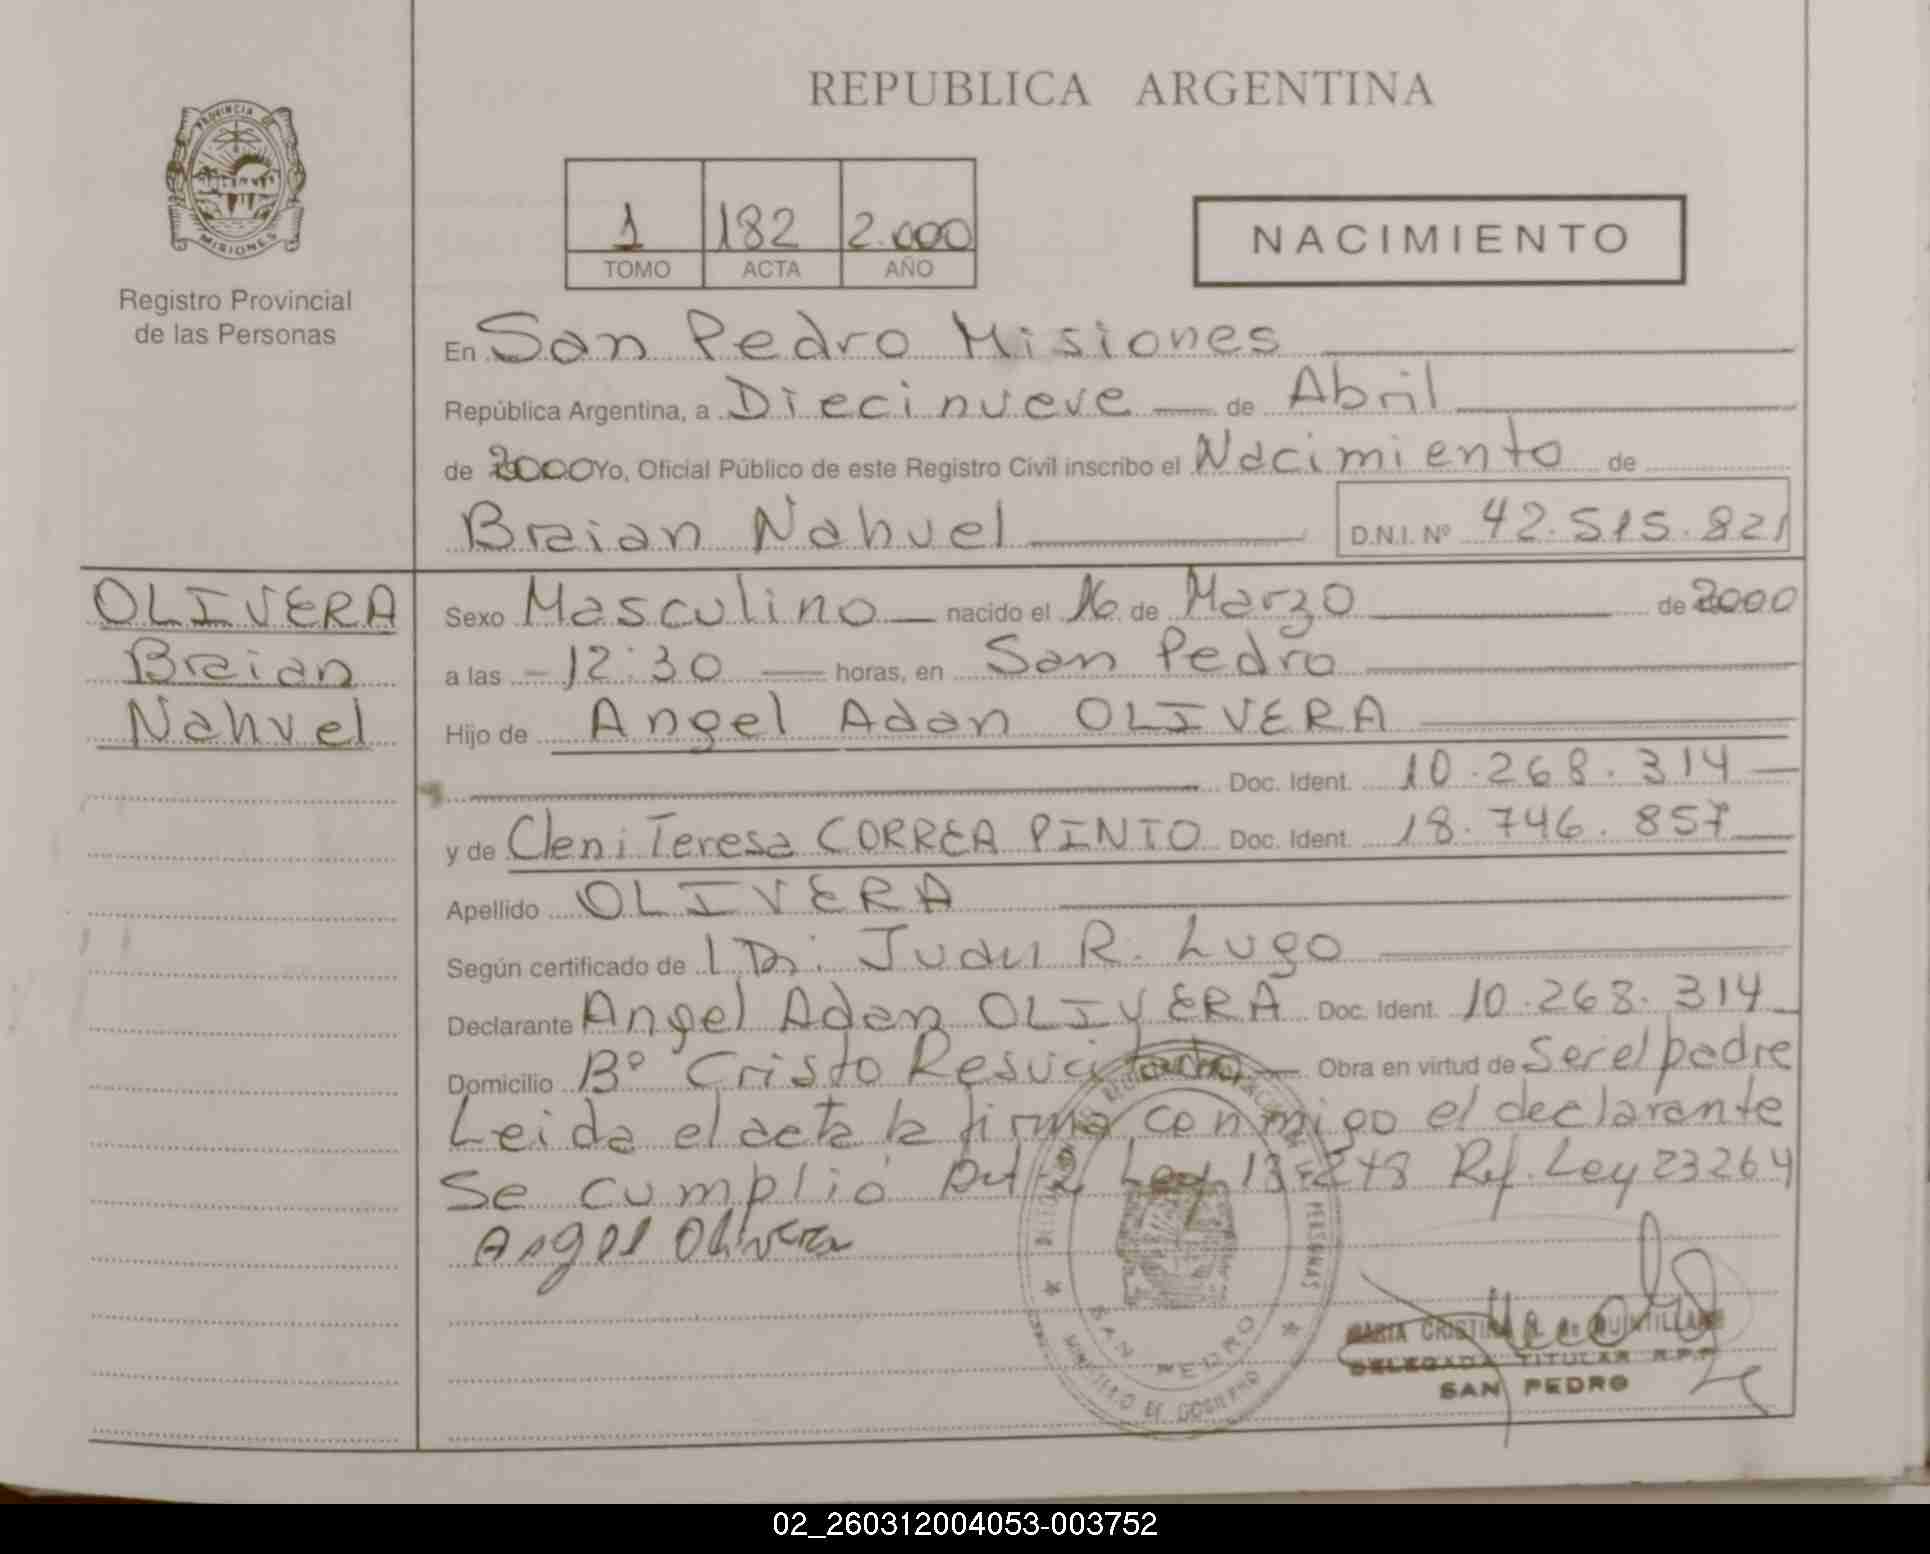 REPUBLICA ARGENTINA
PROVINCIA DE
MISIONES
Registro Provincial
de las Personas
1 182 2.000
TOMO ACTA AÑO
NACIMIENTO
En San Pedro Misiones
República Argentina, a Diecinueve de Abril
de 2000 Yo, Oficial Público de este Registro Civil inscribo el Nacimiento de
Braian Nahuel D.N.I. Nº 42.515.821
OLIVERA
Braian
Nahuel
Sexo Masculino nacido el 16 de Marzo de 2000
a las 12:30 horas, en San Pedro
Hijo de Angel Adan OLIVERA
Doc. Ident. 10.268.314
y de Cleni Teresa CORREA PINTO Doc. Ident. 18.746.857
Apellido OLIVERA
Según certificado de Juan R. Lugo
Declarante Angel Adan OLIVERA Doc. Ident. 10.268.314
Domicilio Bº Cristo Resucitado Obra en virtud de Ser el padre
Leida el acta la firma conmigo el declarante
Se cumplió Art. 2 Ley 13.248 Ref. Ley 23264
Angel Olivera
PERSONAS
SAN PEDRO
MINISTERIO DE GOBIERNO
MARIA CRISTINA R. de QUINTILLAN
DELEGADA TITULAR R.P.P.
SAN PEDRO
02_260312004053-003752